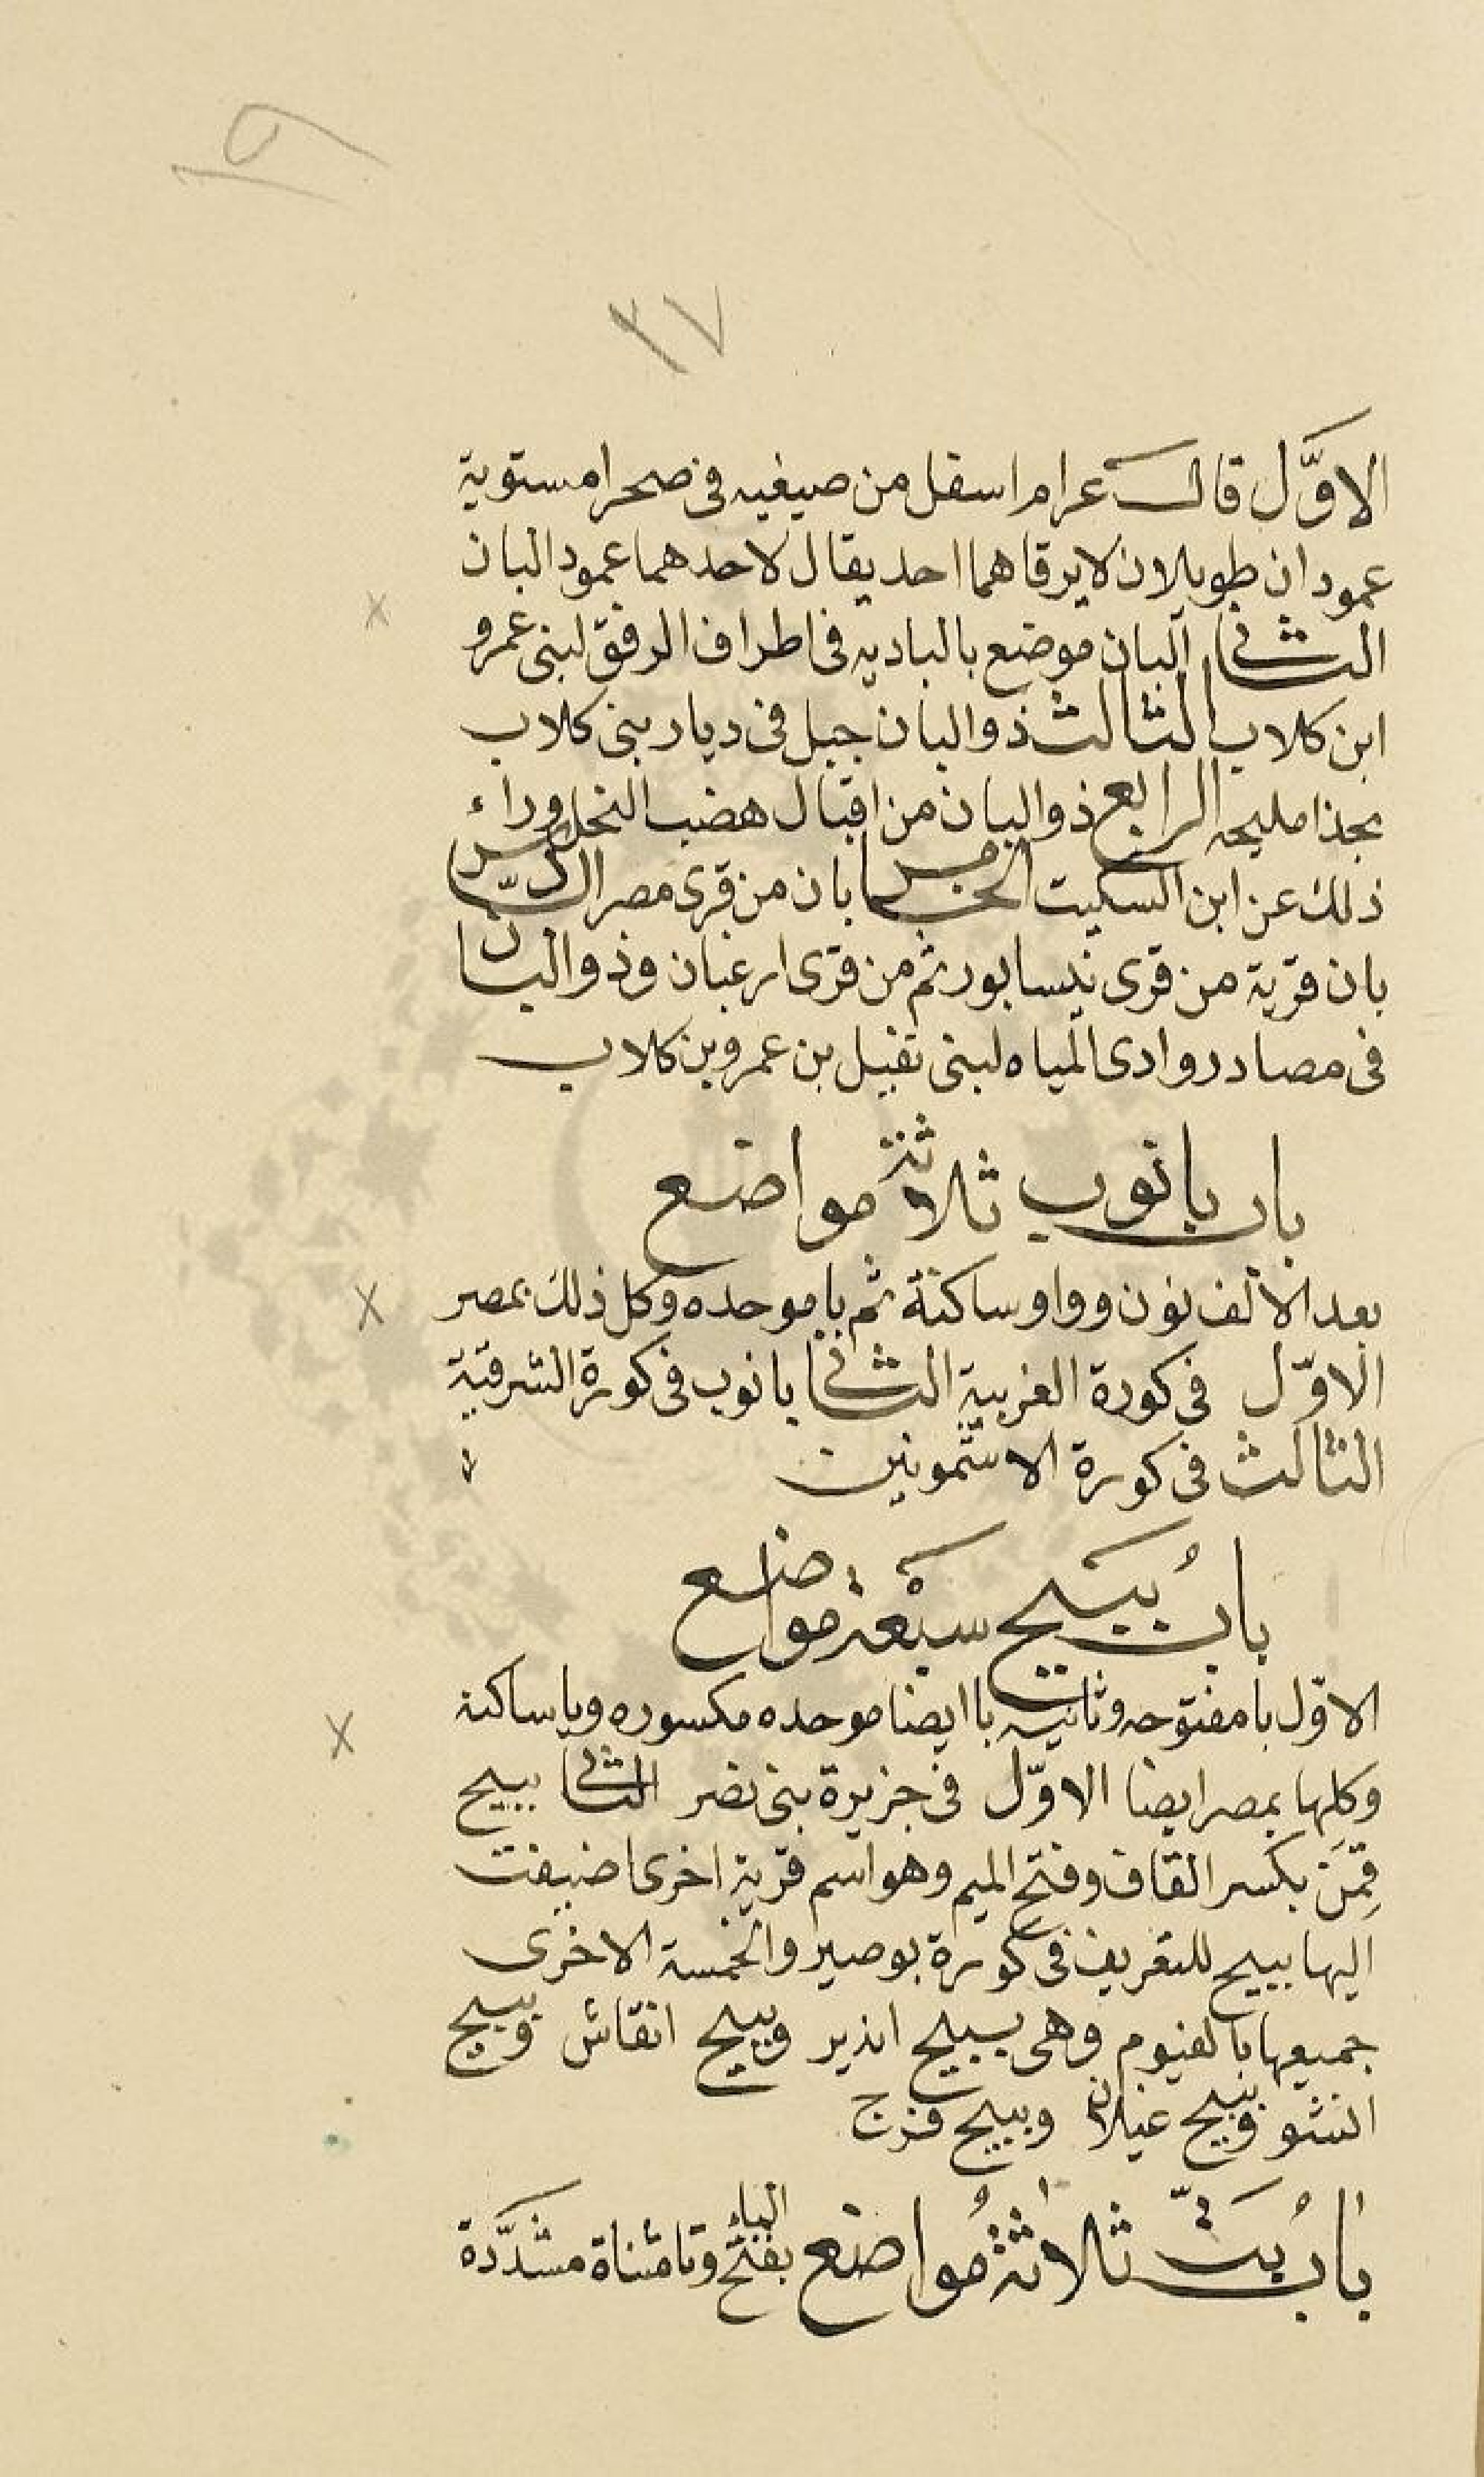 ٣٧
الاوَّل قال عرام اسفل من صيغيه فى صحرا مستوية
عمودان طويلان لا يرقاهما احد يقال لاحدهما عمود البان
الثانى البان موضع بالباديه فى اطراف الرفق لبنى عمرو
ابن كلاب الثالث ذو البان جبل فى ديار بنى كلاب
بحذا مليحه الرابع ذو البان من اقبال هضب النخل وراء
ذلك عن ابن السكيت الخامس ابان من قرى مصر السّادس
بان قرية من قرى نيسابور ثم من قرى ارغيان وذو البان
فى مصادر وادى المياه لبنى نفيل بن عمرو بن كلاب
باب بانوب ثلاثة مواضع
بعد الالف نون وواو ساكنة ثم با موحده وكل ذلك بمصر
الاوّل فى كورة الغربية الثانى بانوب فى كورة الشرقية
الثالث فى كورة الاشمونين
باب بُبَيح سبْعة مواضع
الاوّل با مفتوحه وثانيه با ايضا موحده مكسوره ويا ساكنة
وكلها بمصر ايضا الاوّل فى جزيرة بنى نصر الثانى ببيح
قِمَن بكسر القاف وفتح الميم وهو اسم قرية اخرى اضيفت
اليها ببيح للتعريف فى كورة بوصير والخمسة الاخرى
جميعها بالفيوم وهى ببيح اندير وببيح انقاش وببيح
النشو وببيح غيلان وببيح فرج
باب بُتَّ ثلاثة مواضع بفتح الباء وتا مثناة مشدَّدة